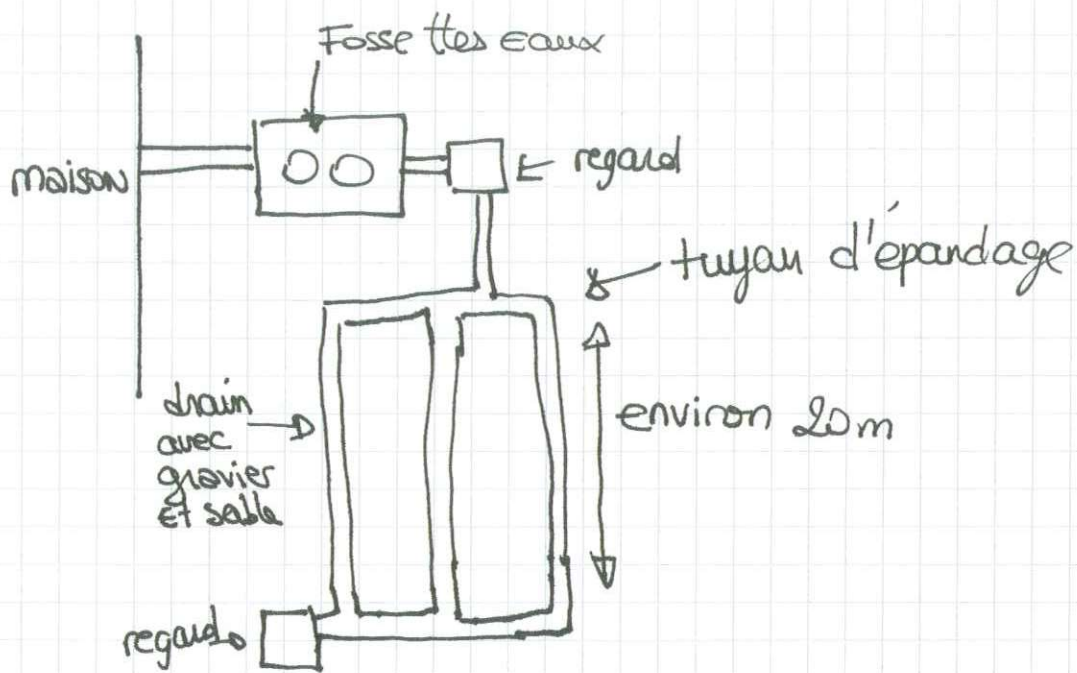 Fosse ttes eaux
maison
regard
tuyau d'épandage
drain
avec
gravier
et sable
environ 20m
regard